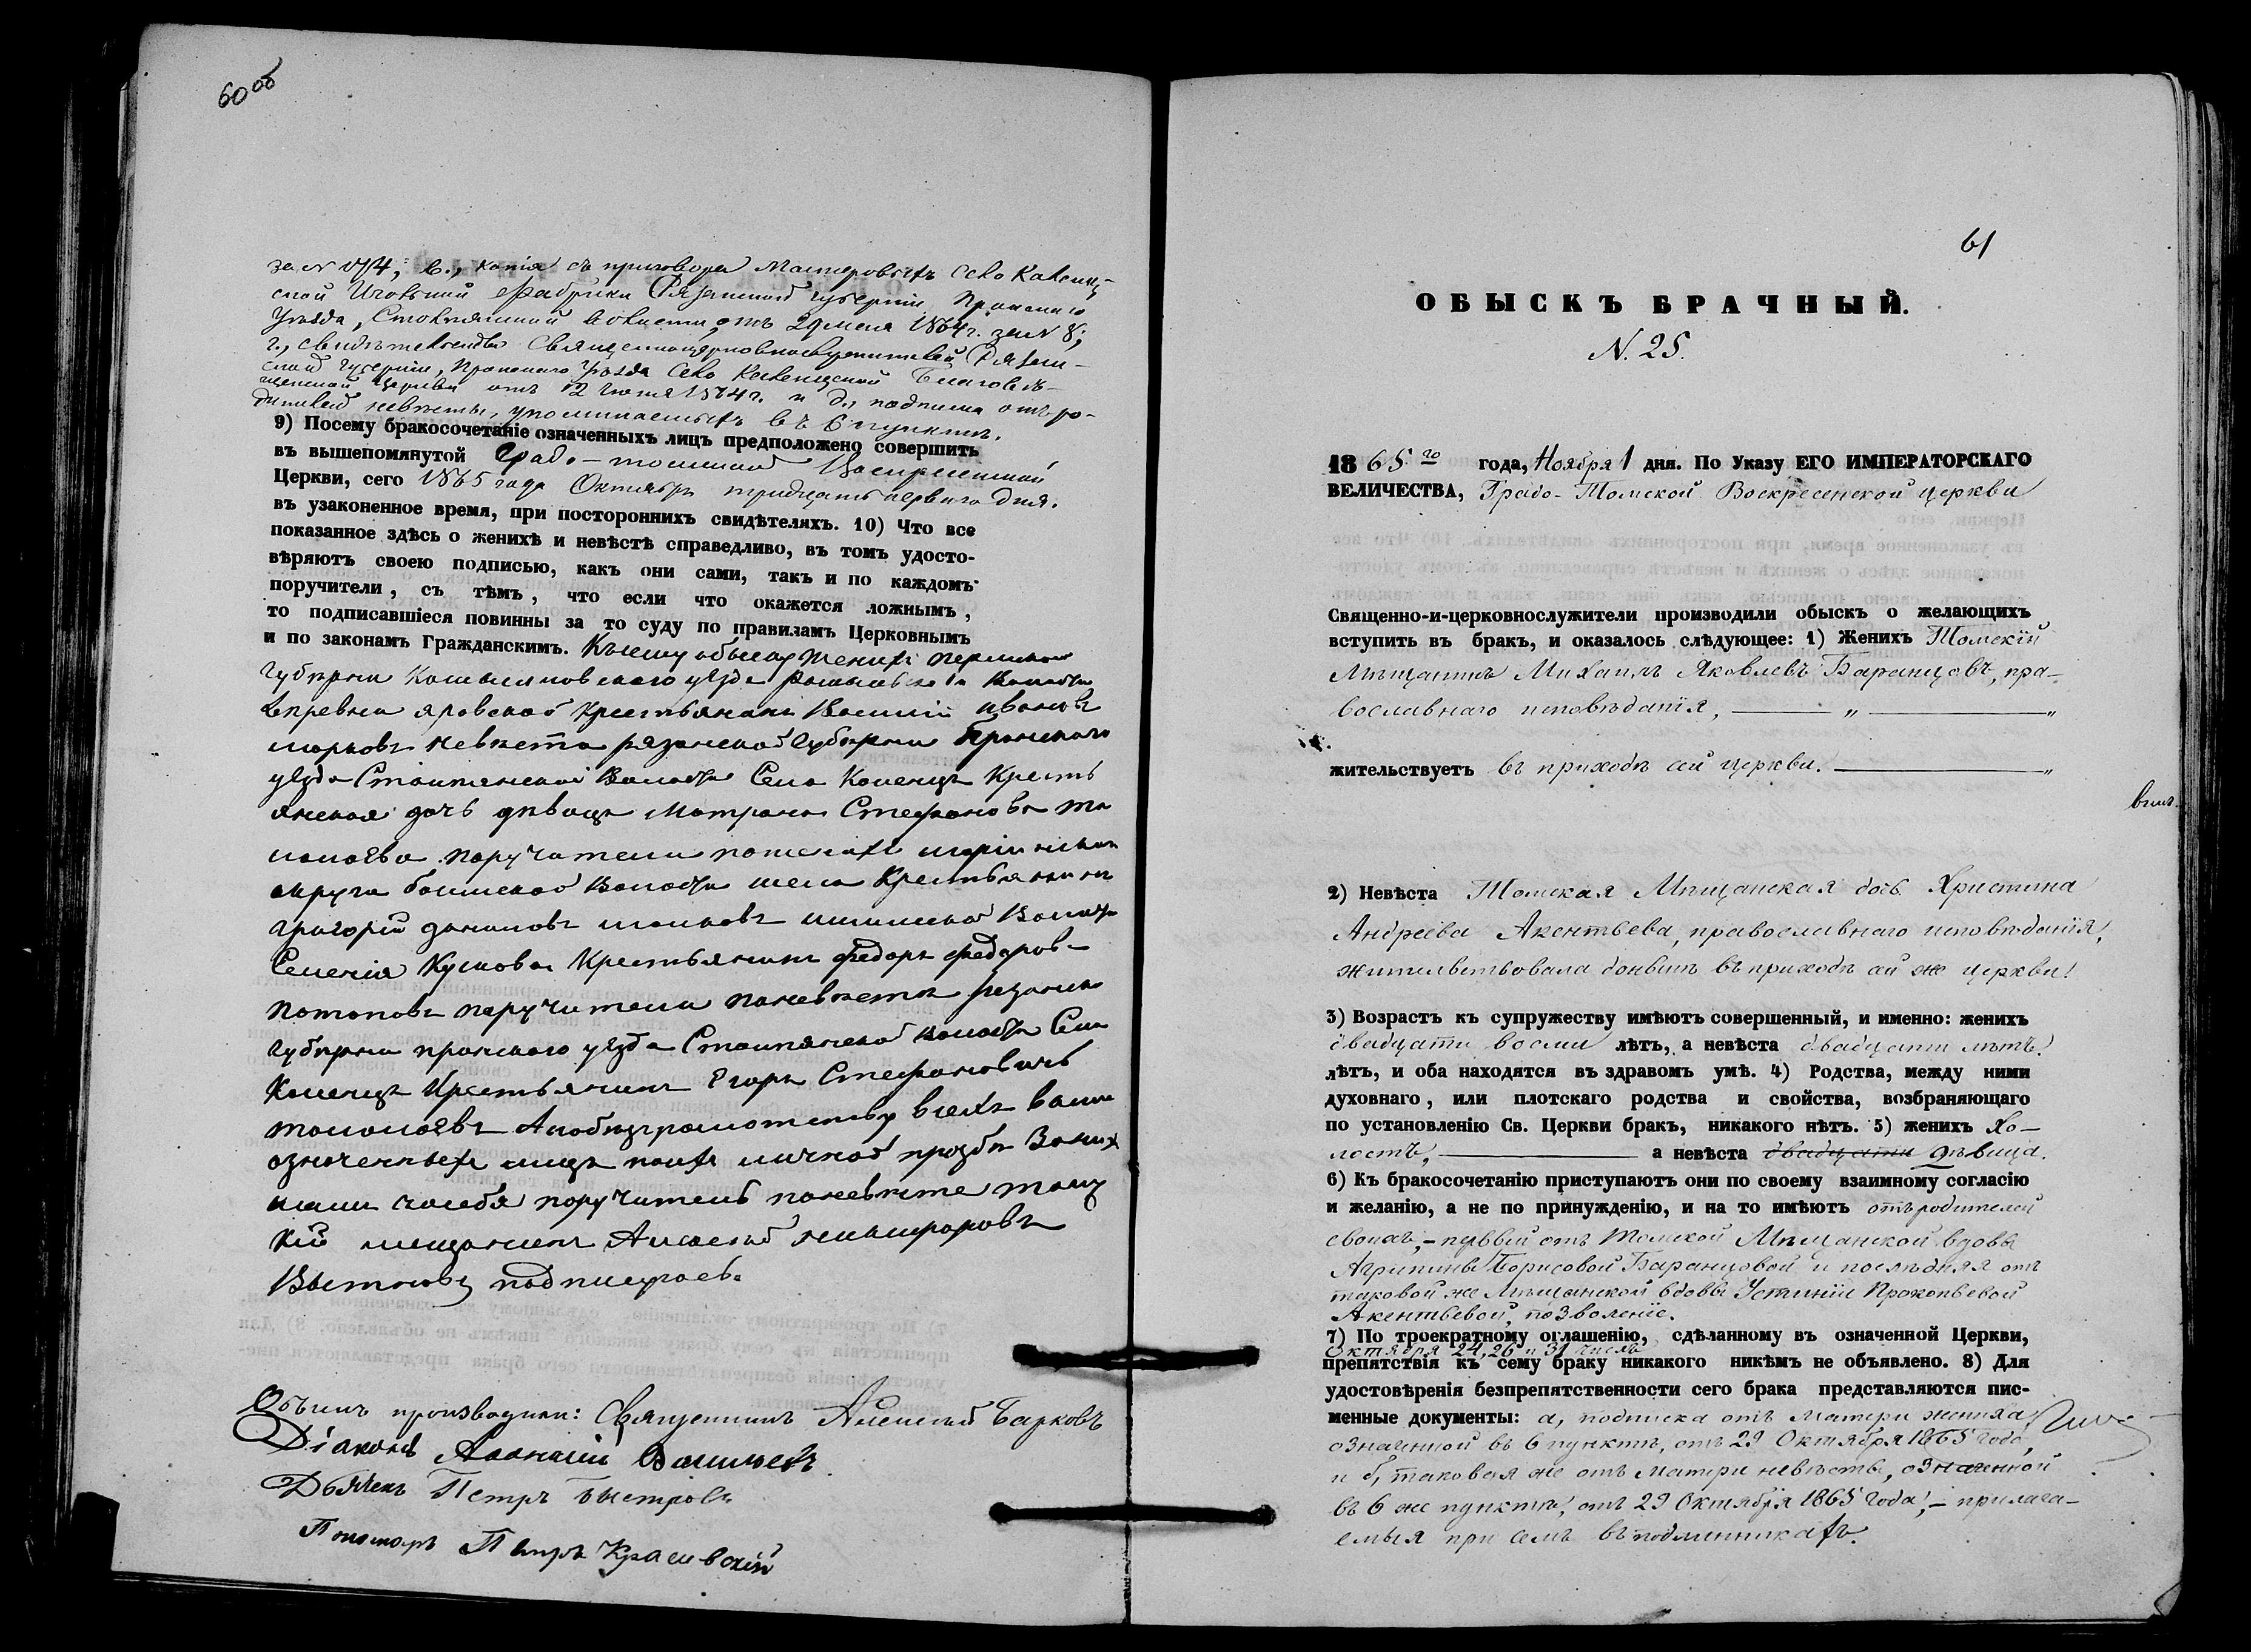 60 об
за N 174; в., копія съ приговора Мастеровыхъ села Каленц-
ской Игольной Фабрики Рязанской губерніи Пронскаго
Уѣзда, Столпянской волости, отъ 29 мая 1864 г. за N 8;
г., свидѣтельство Священноцерковнослужителей Рязан-
ской Губерніи, Пронскаго Уѣзда Села Каленцской Благовѣ-
щенской церкви отъ 12 Іюня 1864 г. и д., подписка отъ ро-
дителей невѣсты, упоминаемыхъ въ 6 пунктѣ.
9) Посему бракосочетаніе означенныхъ лицъ предположено совершить
въ вышепомянутой Градо-томской Воскресенской
Церкви, сего 1865 года Октября тридцать перваго дня.
въ узаконенное время, при постороннихъ свидѣтеляхъ. 10) Что все
показанное здѣсь о женихѣ и невѣстѣ справедливо, въ томъ удосто-
вѣряютъ своею подписью, какъ они сами, такъ и по каждомъ
поручители, съ тѣмъ, что если что окажется ложнымъ,
то подписавшіеся повинны за то суду по правиламъ Церковнымъ
и по законамъ Гражданскимъ. Къ сему обыску Жених пермской
губерни уезда волости
деревни яровской крестьянинъ Василий Ивановъ
невѣста рязанской губерни пронскаго
уезда Столпянской волости Села Каленцъ Кресть
янская дочь девица Матрона Стефанова
поручители по женихѣ
округа волости села Крестьянинъ
григорий даниловъ волости
Селенія Крестьянинъ федоръ федоров
потаповъ поручители по невѣстѣ рязанско
губерни пронского уезда Столпянской волости Села
Каленцъ Крестьянинъ Егоръ Стефановичъ
А по безграмотству всехъ выше
означенныхъ лицъ по ихъ личной прозбѣ За них
и за себя поручитель по невѣсте томс
кій мещанинъ Алексей никифоровъ
подписуюсь
Обыскъ производили: Священникъ Алексѣй Барковъ
Діаконъ Афанасій Васильевъ
Дьячекъ Петръ Быстровъ
Пономарь Петръ Красивскій
61
ОБЫСКЪ БРАЧНЫЙ.
N. 25.
1865го года, Ноября 1 дня. По Указу ЕГО ИМПЕРАТОРСКАГО
ВЕЛИЧЕСТВА, Градо-Томской Воскресенской церкви
Священно-и-церковнослужители производили обыскъ о желающихъ
вступить въ бракъ, и оказалось слѣдующее: 1) Женихъ Томскій
Мѣщанинъ Михаилъ Яковлевъ Баранцовъ, пра-
вославнаго исповѣданія, — „ — „
жительствуетъ въ приходѣ сей церкви. — „
2) Невѣста Томская Мѣщанская дочь Христина
Андреева Акентьева, православнаго исповѣданія,
жительствовала донынѣ въ приходѣ сей же церкви.
3) Возрастъ къ супружеству имѣютъ совершенный, и именно: женихъ
двадцати восми лѣтъ, а невѣста двадцати лѣтъ.
лѣтъ, и оба находятся въ здравомъ умѣ. 4) Родства, между ними
духовнаго, или плотскаго родства и свойства, возбраняющаго
по установленію Св. Церкви бракъ, никакого нѣтъ. 5) женихъ Хо-
лостъ, — а невѣста двадцати дѣвица.
6) Къ бракосочетанію приступаютъ они по своему взаимному согласію
и желанію, а не по принужденію, и на то имѣютъ отъ родителей
своихъ, - первый отъ Томской Мѣщанской вдовы
Агрипины Борисовой Баранцовой и послѣдняя отъ
таковой же Мѣщанской вдовы Устиніи Прокопьевой
Акентьевой, позволеніе.
7) По троекратному оглашенію, сдѣланному въ означенной Церкви,
Октября 24, 26 и 31 числъ
препятствія къ сему браку никакого никѣмъ не объявлено. 8) Для
удостовѣренія безпрепятственности сего брака представляются пис-
менные документы: а, подписка отъ матери жениха,
означенной въ 6 пунктѣ, отъ 29 Октября 1865 года,
и б, таковая же отъ матери невѣсты, означенной
въ 6 же пунктѣ, отъ 29 Октября 1865 года, - прилага-
емыя при семъ въ подлинникахъ.